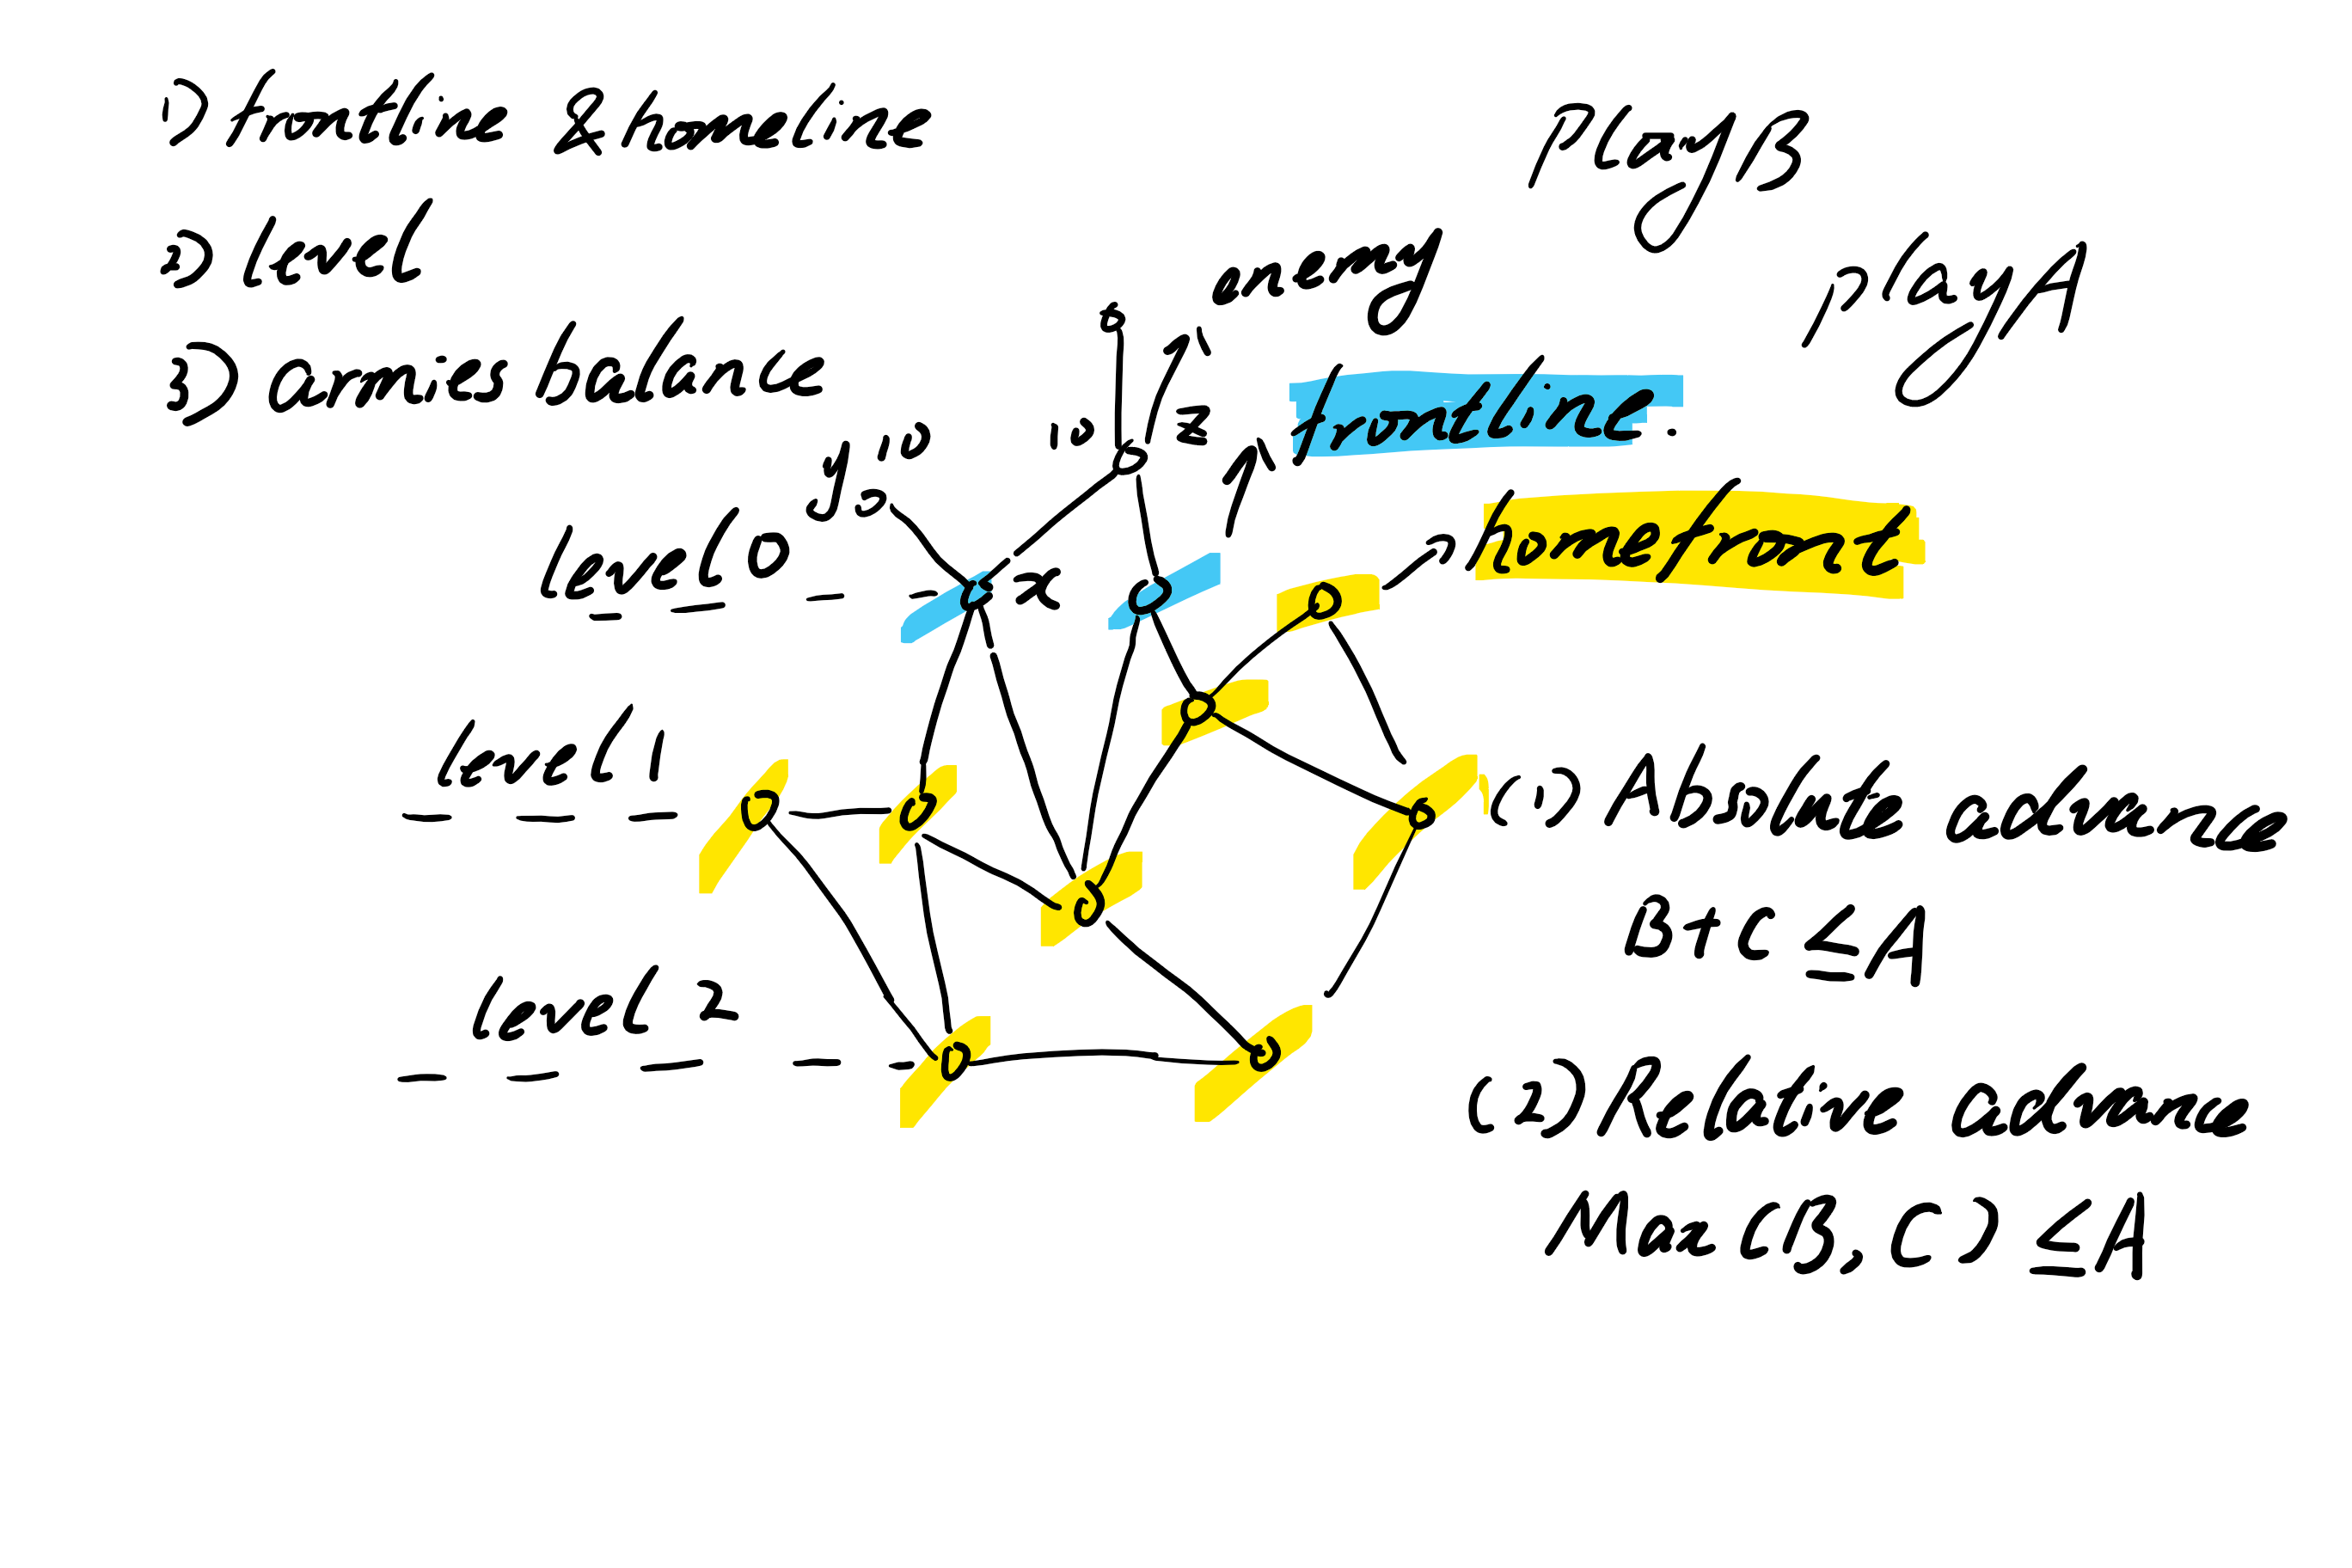 1) frontline & homeline
2) level
3) armies balance
Play B
Play A
enemy
frontline.
homefront
10
z
y
10
x
level 0
level 1
level 2
(1) Absolute advance
B + C ≤ A
(2) Relative advance
Max (B, C) ≤ A